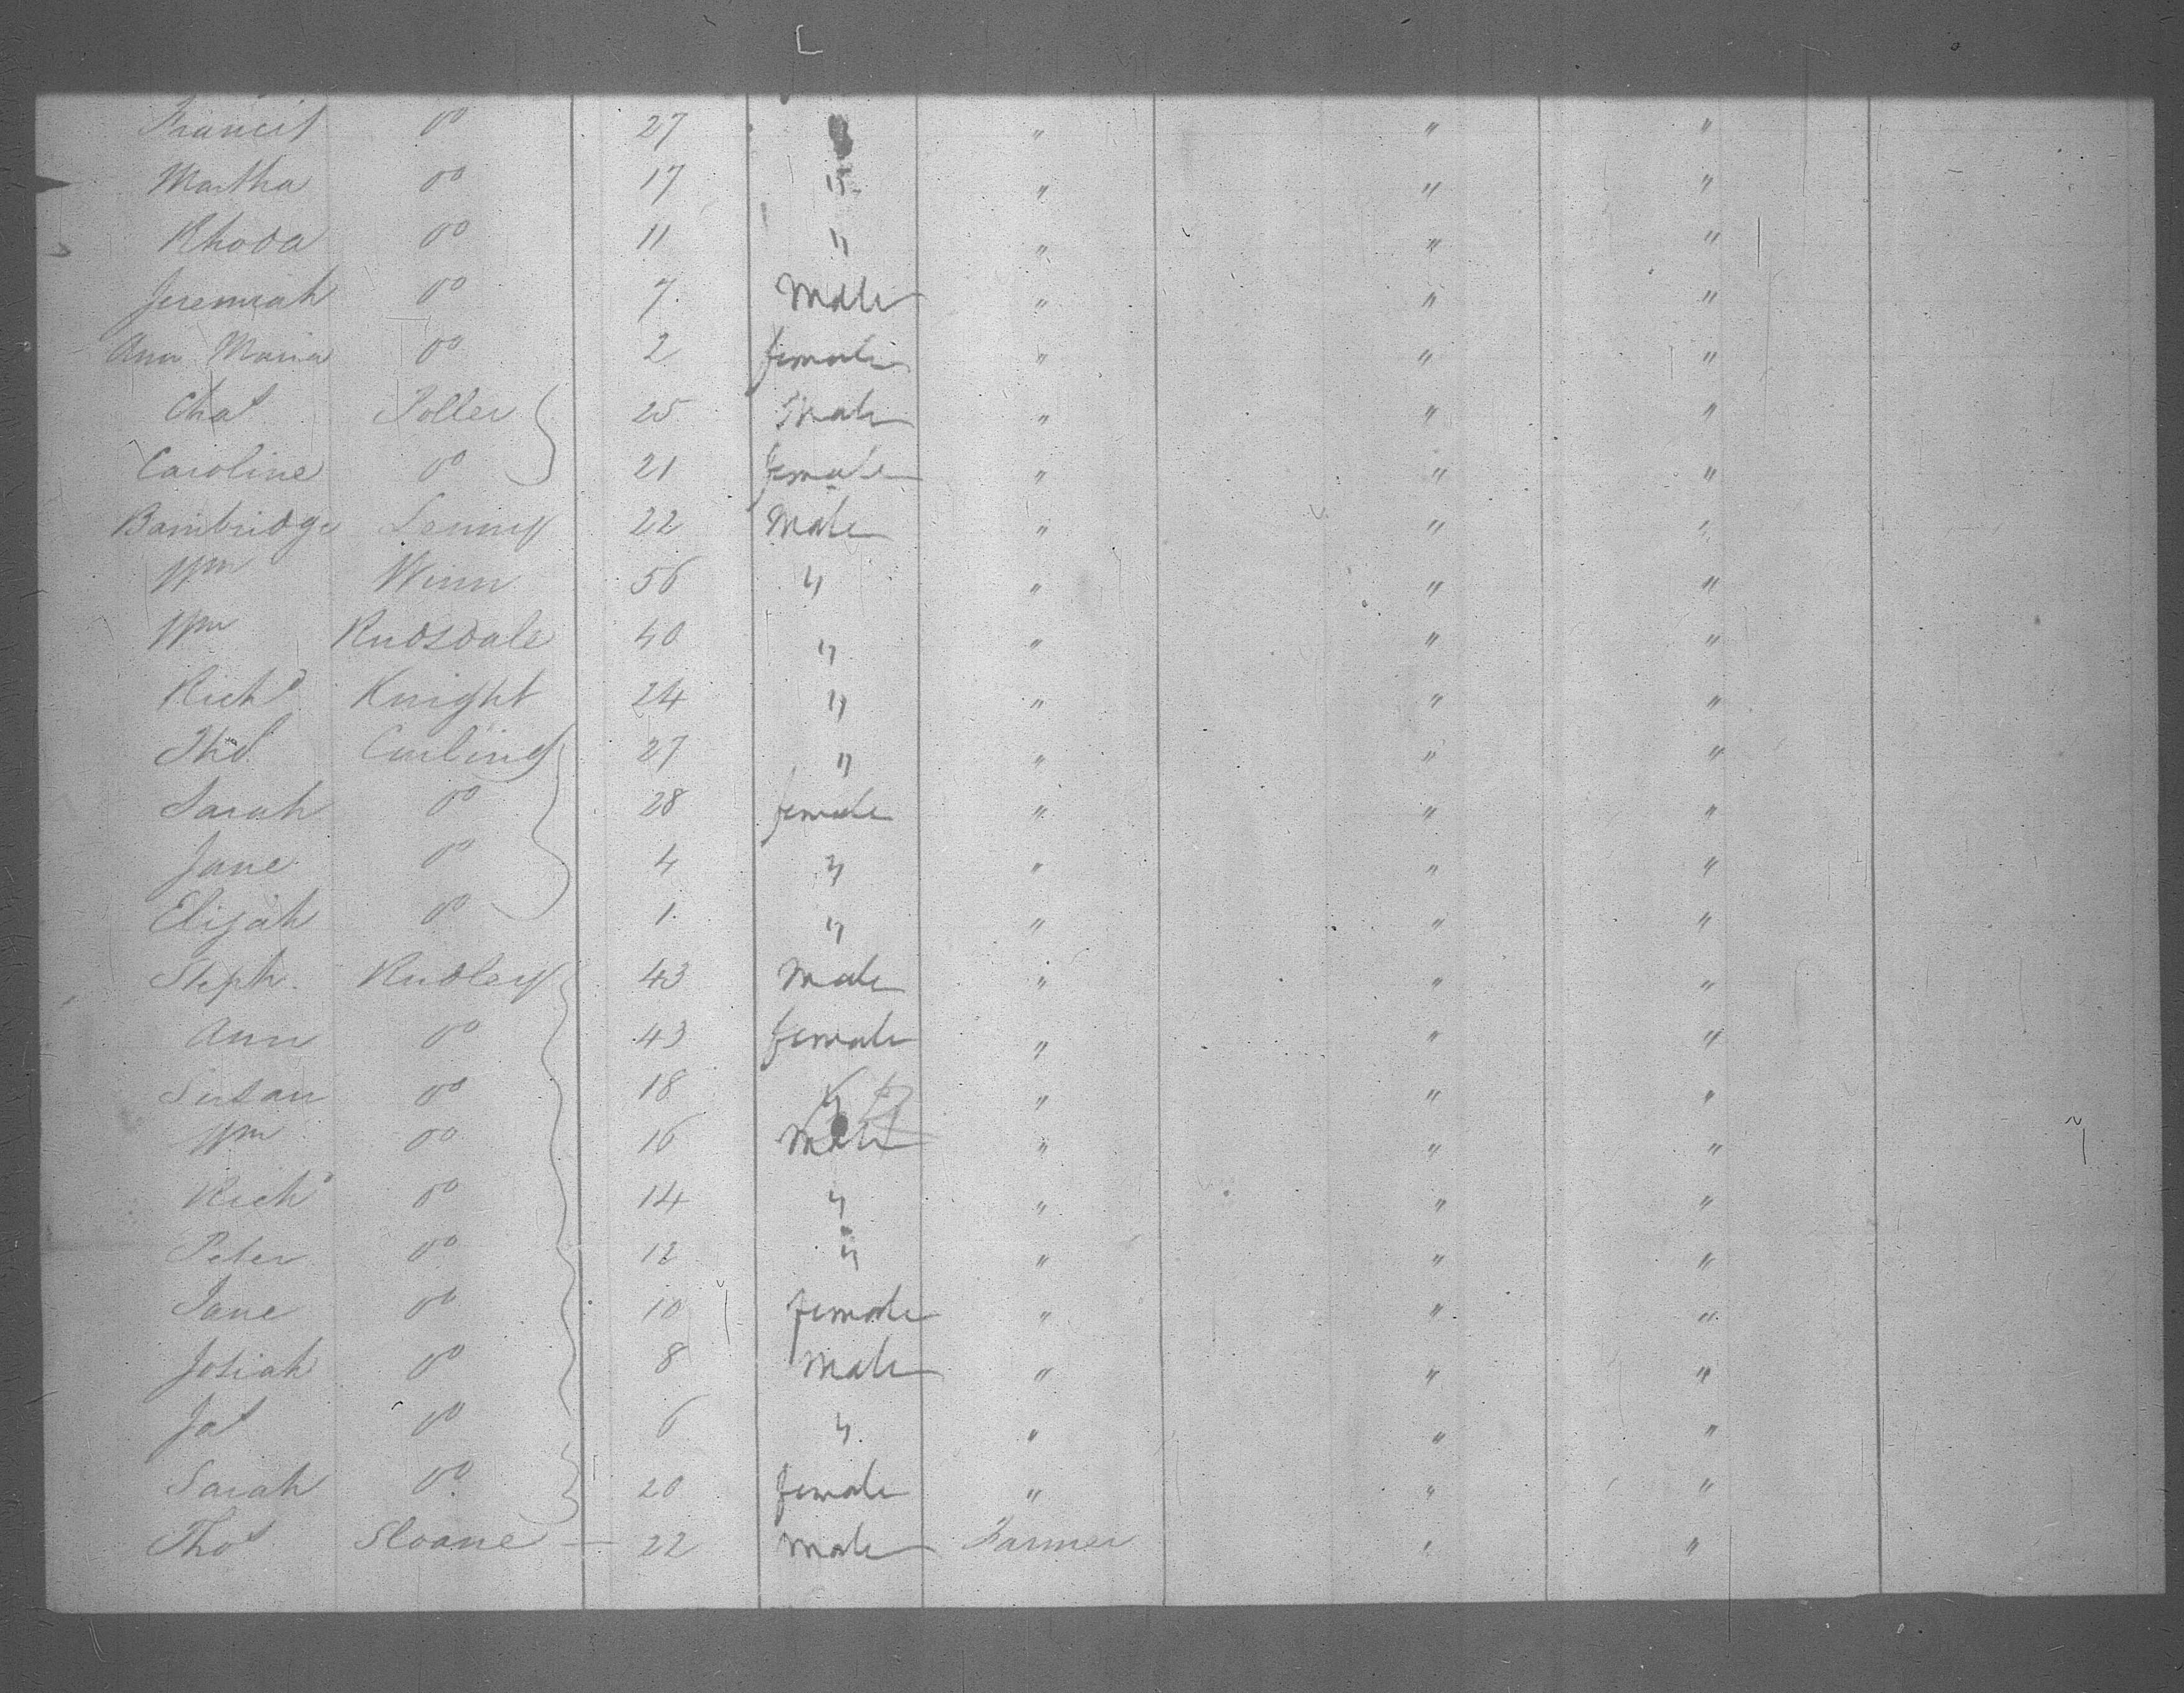 Francis do 27 " "  "
Martha do 17 " " " "
Rhoda do 11 " " " "
Jeremiah do 7. Male " " "
Ann Maria do 2 female " " "
Chas Toller 25 Male " " "
Caroline do 21 female " " "
Bambridge 22 Male " " "
Wm Winn 56 " " " "
Wm Rudsdale 40 " " " "
Richd Knight 24 " " " "
Thos. Carling 27 " " " "
Sarah do 28 female " " "
Jane do 4 " " " "
Elijah do 1. " " " "
Steph. Rudley 43 Male " " "
Ann do 43 female " " "
Susan do 18 " " " "
Wm do 16 Male " " "
Richd do 14 " " " "
Peter do 12 " " " "
Jane do 10 female " " "
Josiah do 8 Male " " "
Jas do 6 " " " "
Sarah do 20 female " " "
Thos Sloane — 22 Male Farmer " "